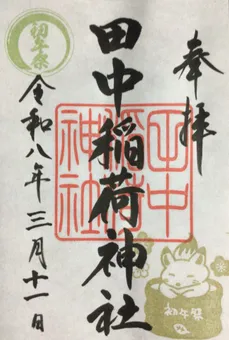 奉拝
田中稲荷神社
田中
稲荷
神社
初午祭
令和八年三月十一日
初午祭